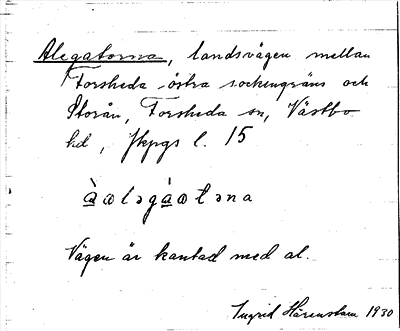 Alegatorna, landsvägen mellan
Forsheda östra sockengräns och
Storån, Forsheda sn, Västbo
hd, Jkpgs l. 15
à̱ɷləgá̱ɷtəna
Vägen är kantad med al.
Ingrid Härenstam 1930